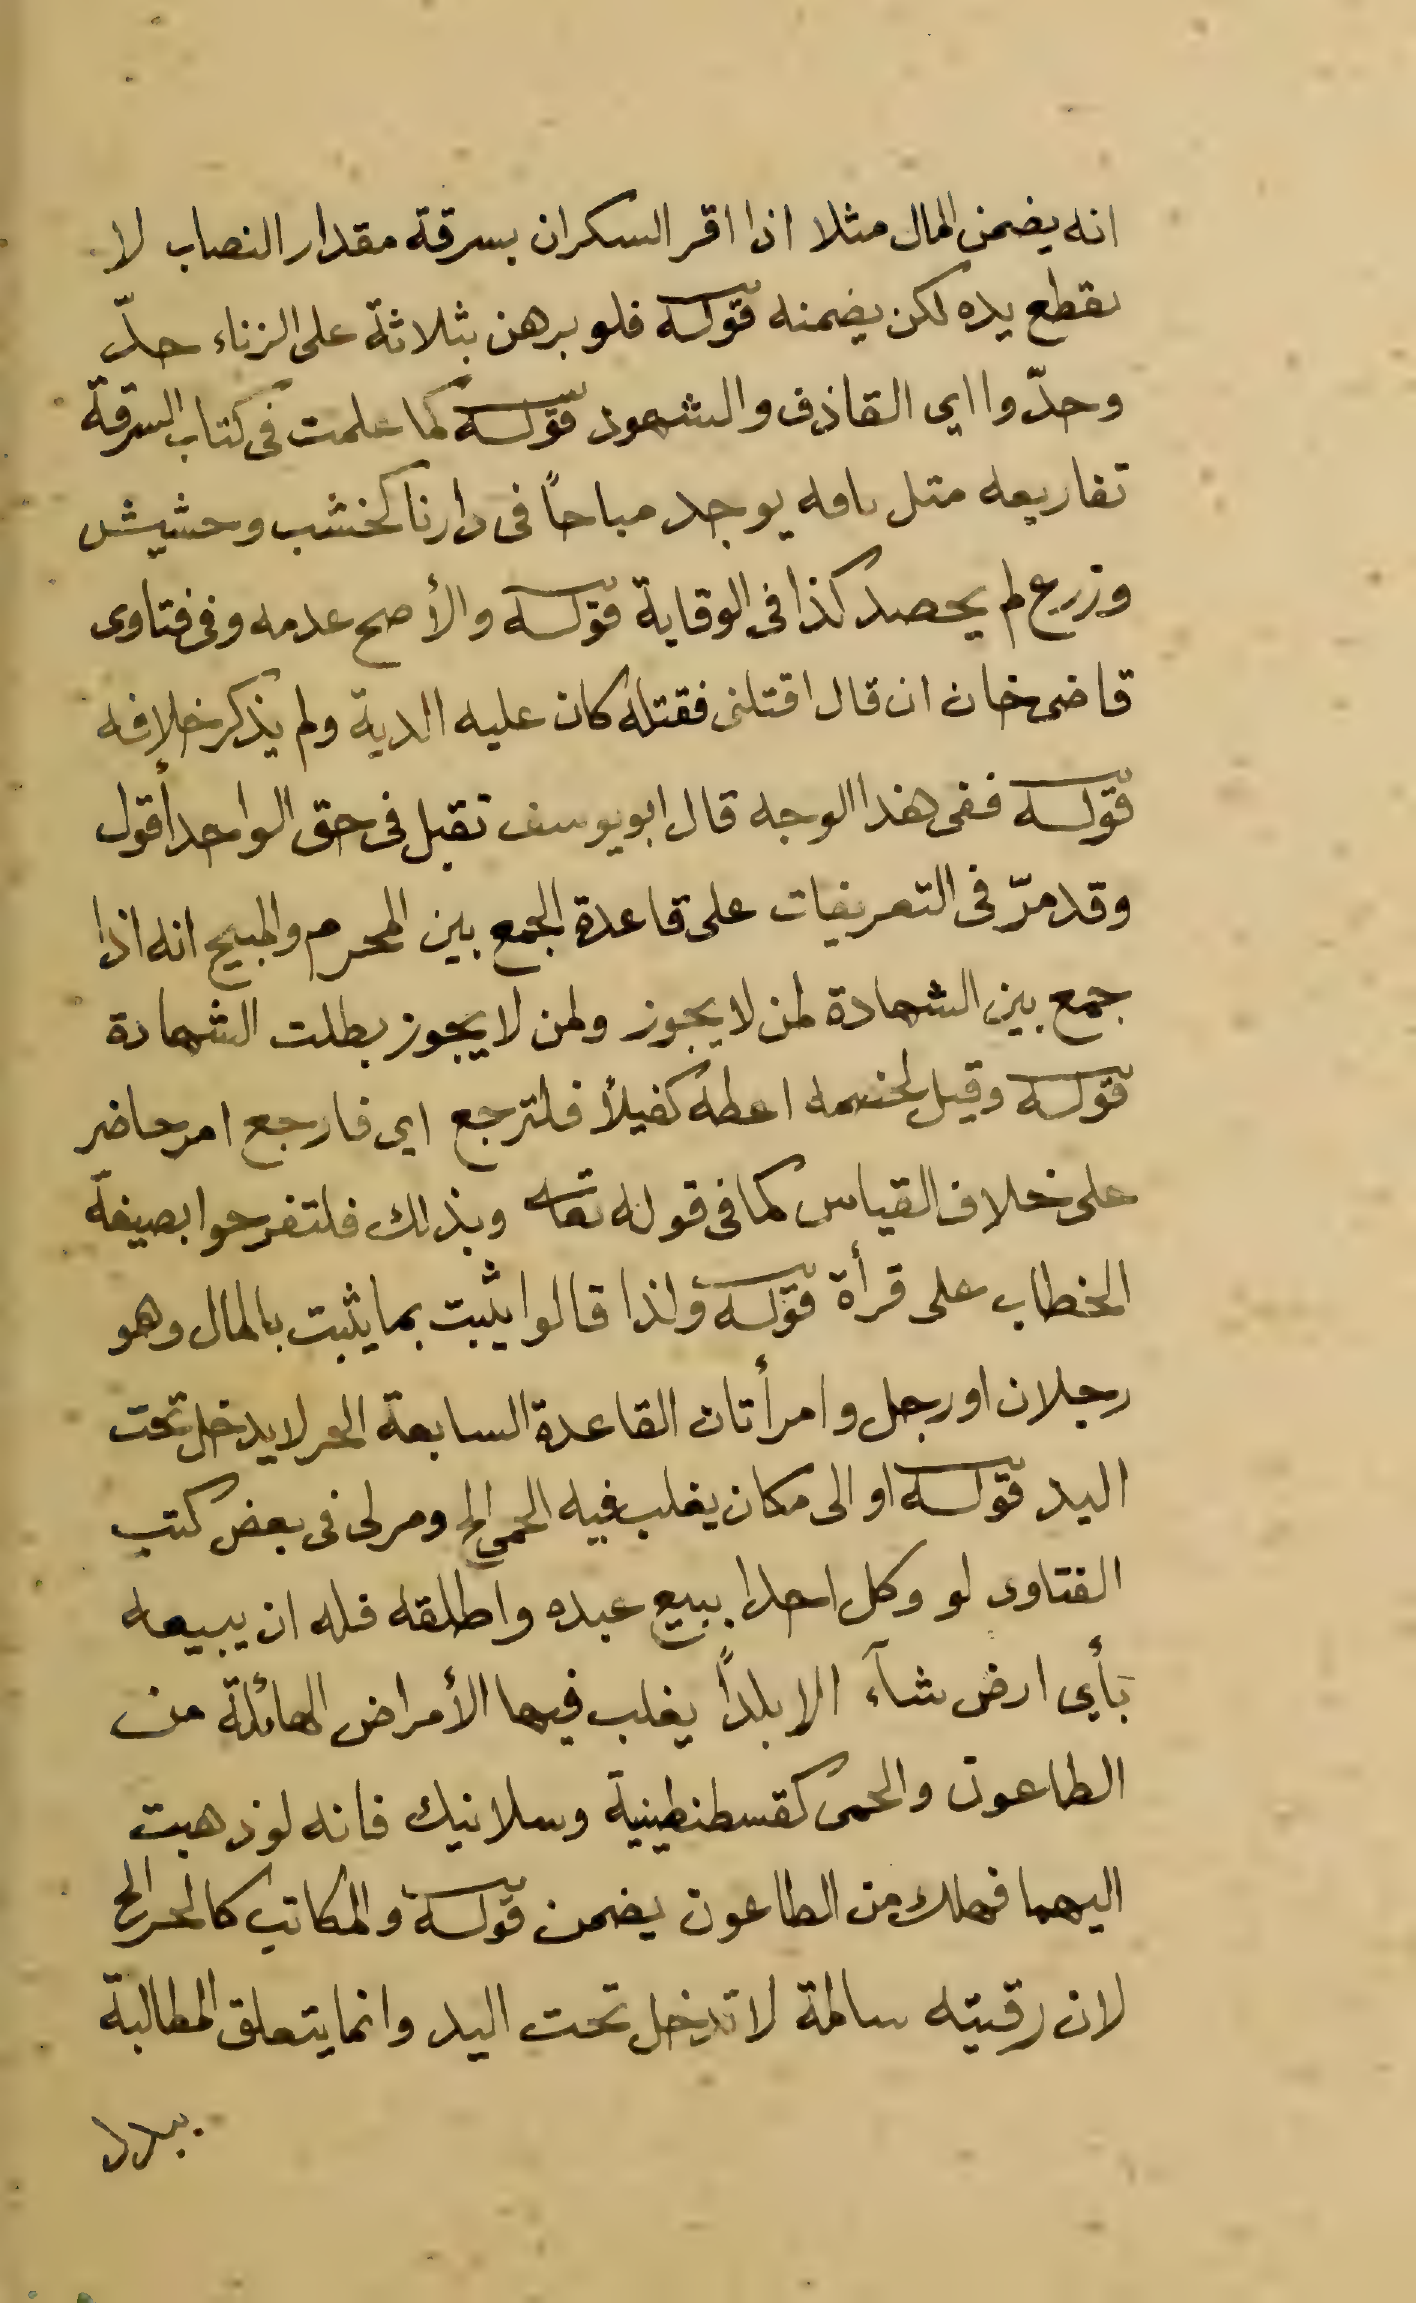 انه يضمن المال مثلا اذا اقر السكران بسرقة مقدار النصاب لا
يقطع يده لكن يضمنه قوله فلو برهن بثلاثة على الزناء حدّ
وحدّوا اي القاذف والشهود قوله كما علمت في كتاب السرقة
تفاريعه مثل تافه يوجد مباحاً في دارنا كخشب وحشيش
وزرع لم يحصد كذا في الوقاية قوله والأصح عدمه وفي فتاوى
قاضى خان ان قال اقتلنى فقتله كان عليه الدية ولم يذكر خلافه
قوله ففي هذا الوجه قال ابو يوسف تقبل في حق الواحد أقول
وقد مرّ في التعريفات على قاعدة الجمع بين المحرم والمبيح انه اذا
جمع بين الشهادة لمن لا يجوز ولمن لا يجوز بطلت الشهادة
قوله وقيل لخصمه اعطه كفيلاً فلترجع اي فارجع امر حاضر
على خلاف القياس كما في قوله تعالى وبذلك فلتفرحوا بصيغة
الخطاب على قرأة قوله ولذا قالوا يثبت بما يثبت بالمال وهو
رجلان او رجل وامرأتان القاعدة السابعة الحر لا يدخل تحت
اليد قوله او الى مكان يغلب فيه الحمى الخ ومر لى في بعض كتب
الفتاوى لو وكل احدا ببيع عبده واطلقه فله ان يبيعه
بأي ارض شآء الا بلداً يغلب فيها الأمراض الهائلة من
الطاعون والحمى كقسطنطينية وسلانيك فانه لو ذهبت
اليهما فهلك من الطاعون يضمن قوله والمكاتب كالحر الخ
لان رقبته سالمة لا تدخل تحت اليد وانما يتعلق المطالبة
ببدل